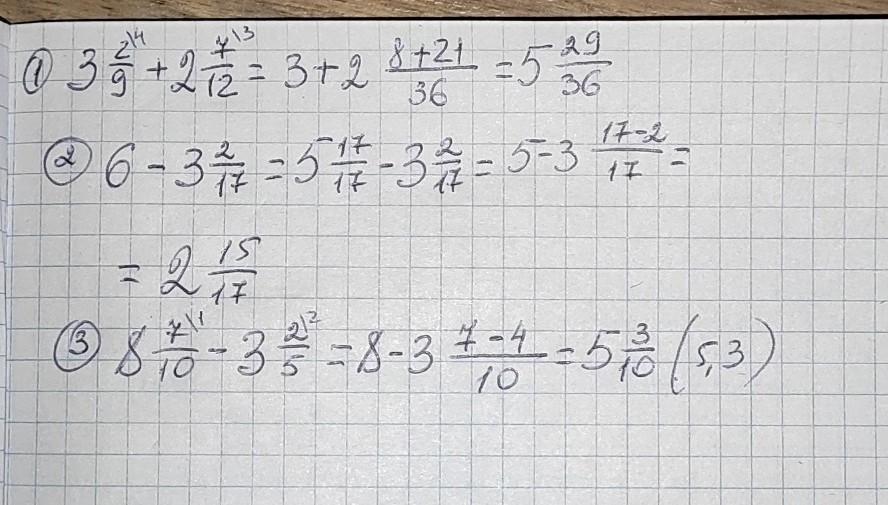 ① 3 2\4/9 + 2 7\3/12 = 3+2 8+21/36 = 5 29/36
② 6 - 3 2/17 = 5 17/17 - 3 2/17 = 5-3 17-2/17 =
= 2 15/17
③ 8 7\1/10 - 3 2\2/5 = 8-3 7-4/10 = 5 3/10 (5,3)